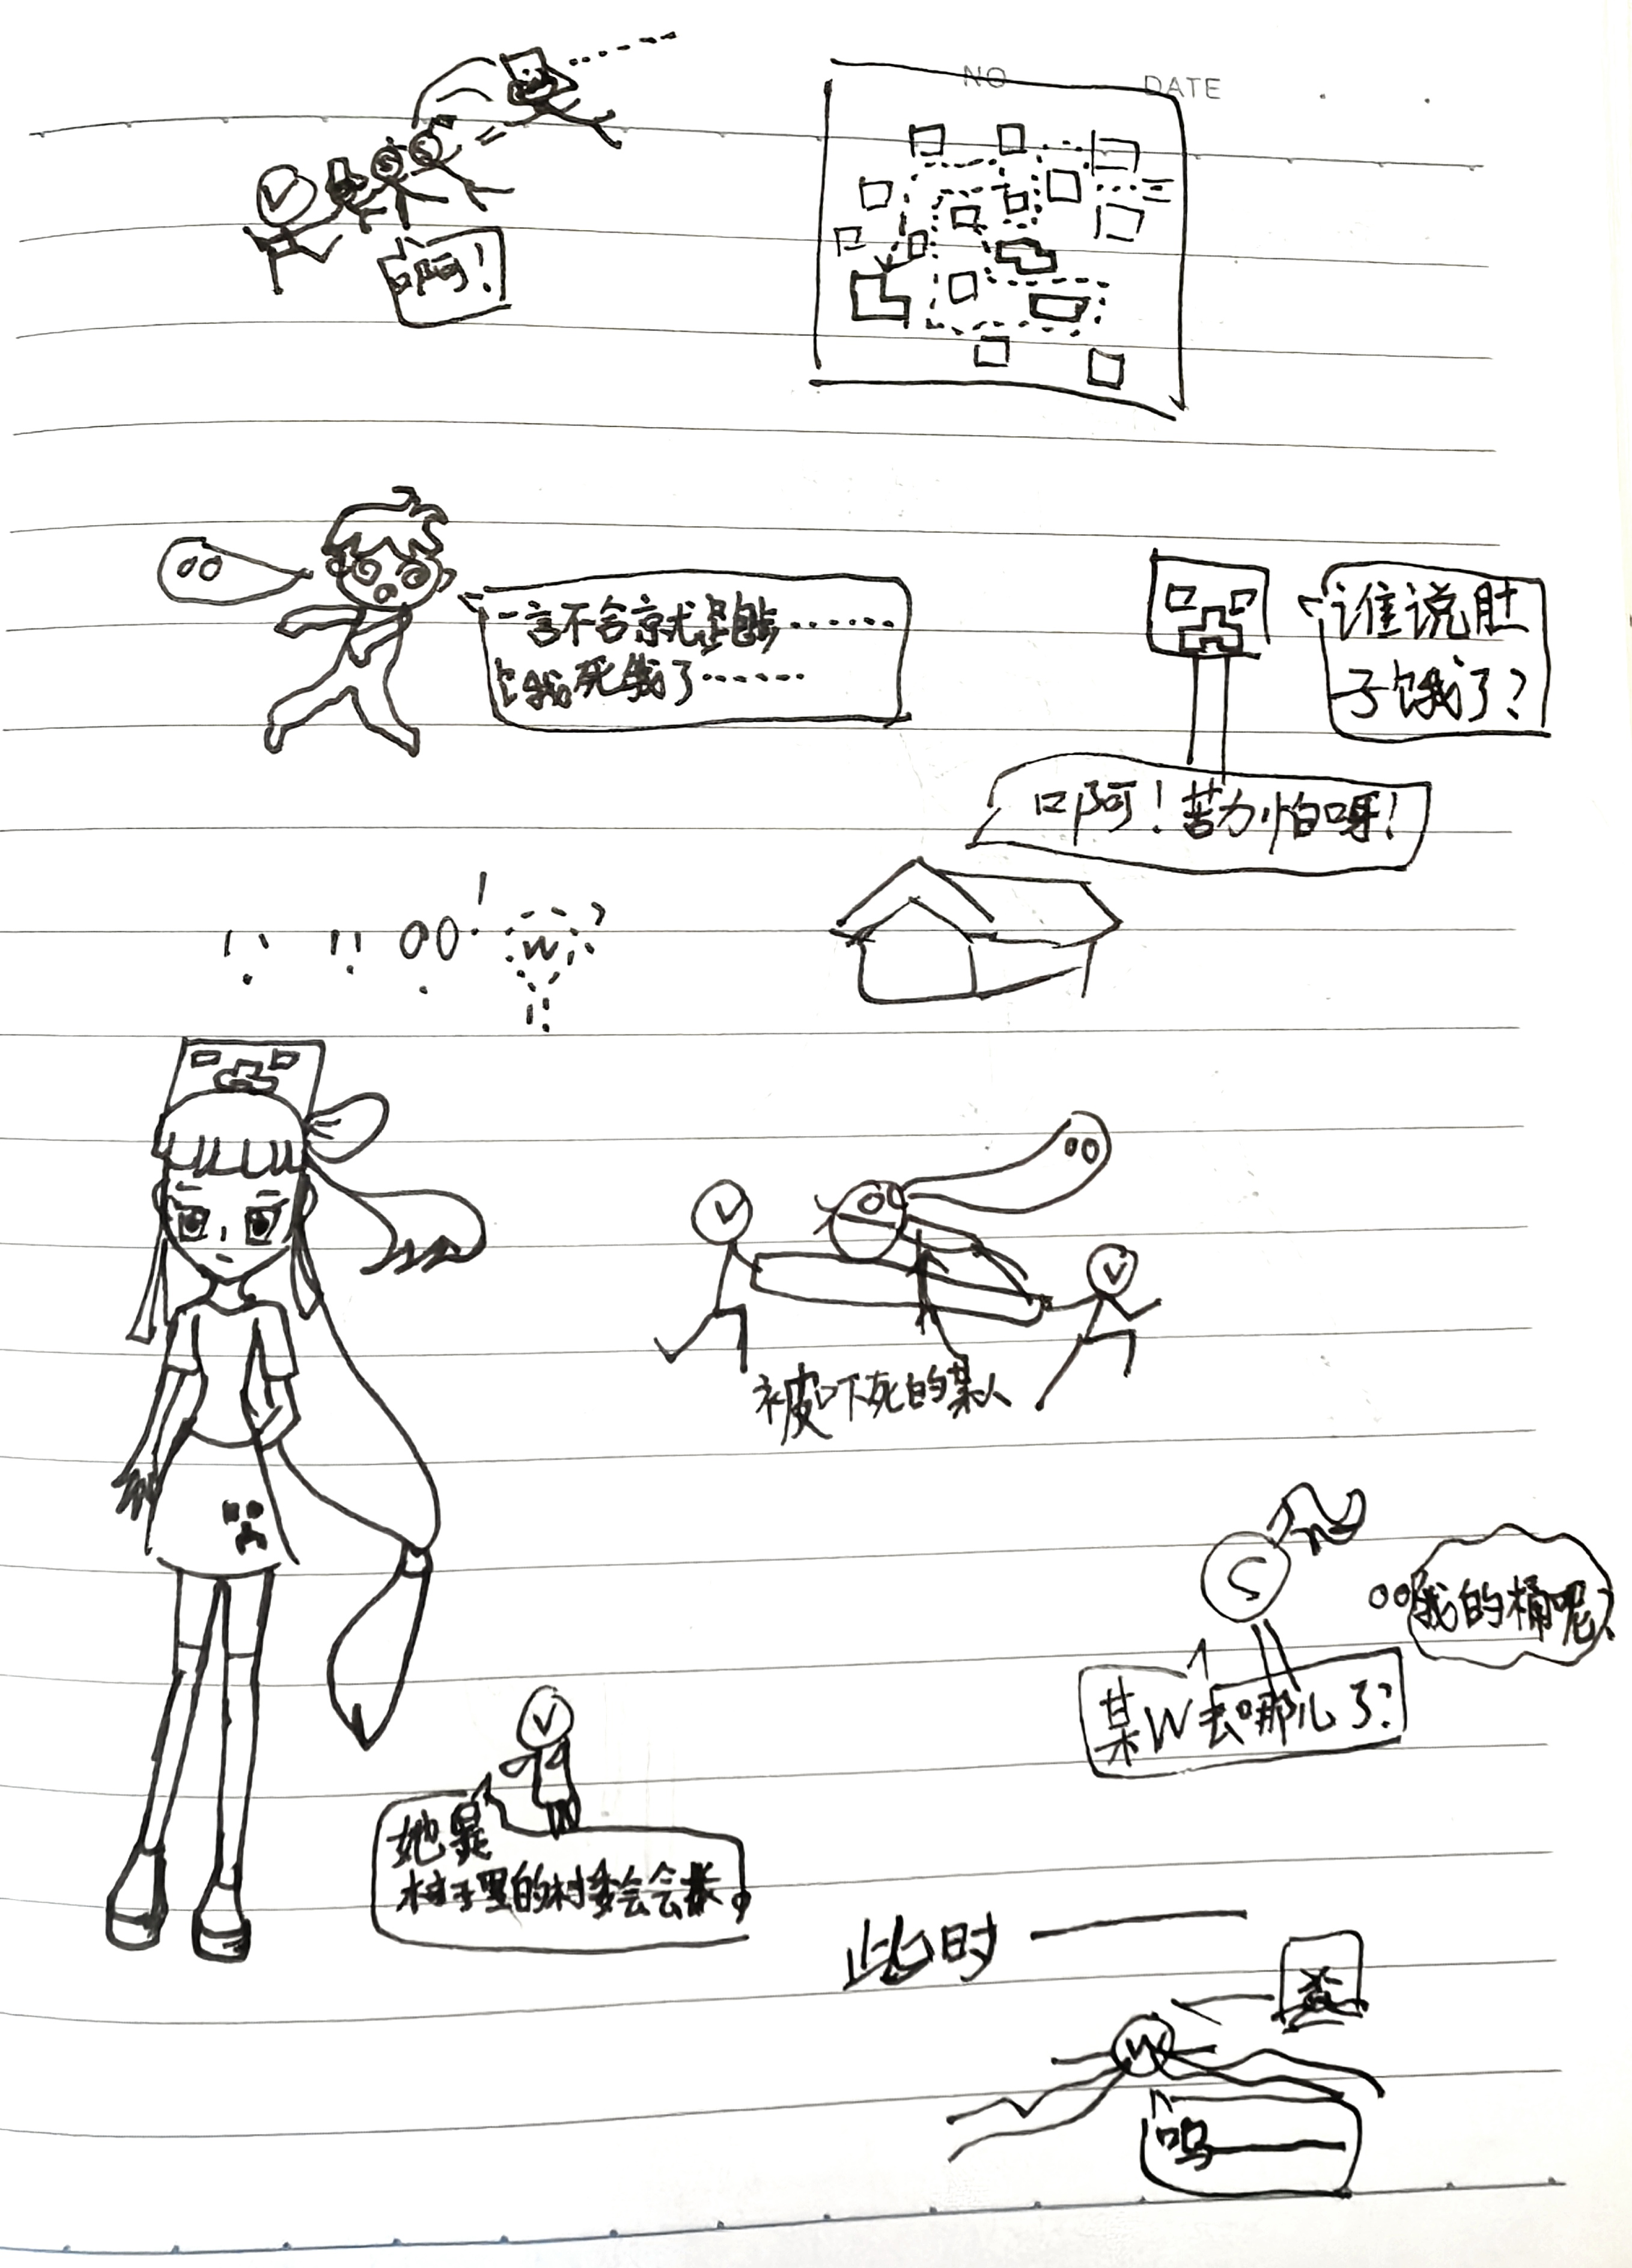 NO
DATE
V
S
S
啊！
一言不合就是跑……
饿死我了……
谁说肚
子饿了？
啊！苦力怕呀！
W
V
V
被吓死的某人
S
我的桶呢？
某W去哪儿了？
V
她是
村子里的村委会会长。
此时——
W
呜——